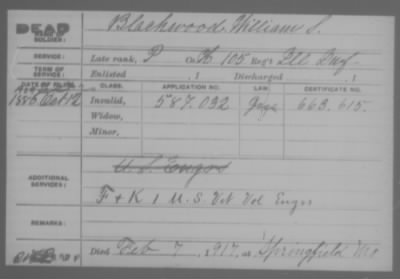 DEAD
NAME OF SOLDIER: Blackwood, William S.
SERVICE: Late rank, P Co. K 105 Reg't Ill Inf.
TERM OF SERVICE: Enlisted , 1 Discharged , 1
DATE OF FILING. CLASS. APPLICATION NO. LAW. CERTIFICATE NO.
1886 Oct 12 Invalid, 587.032 663.615.
Widow,
Minor,
U.S. Engrs
ADDITIONAL SERVICES: F + K 1 U.S. Vet Vol Engrs
REMARKS:
Died Feb 7, 1917, at Springfield Mo